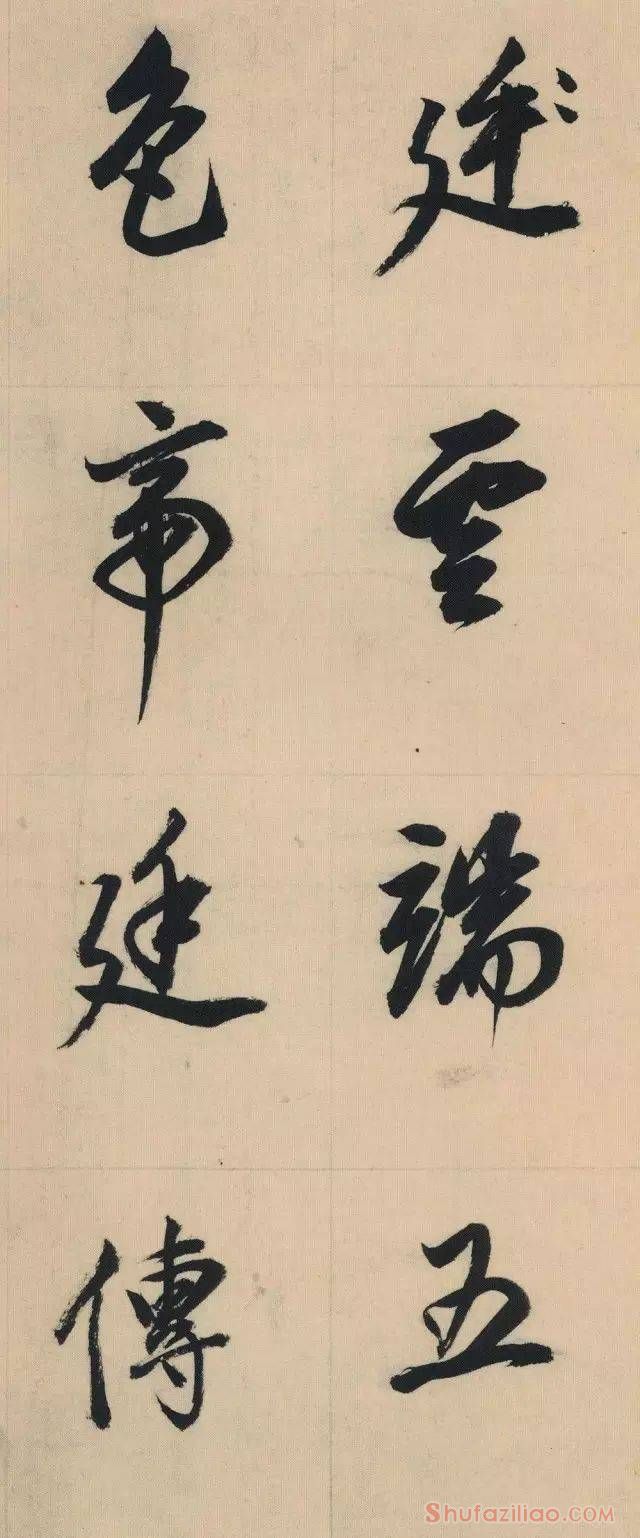 廷雲端五
色帝廷傳
Shufaziliao.COM